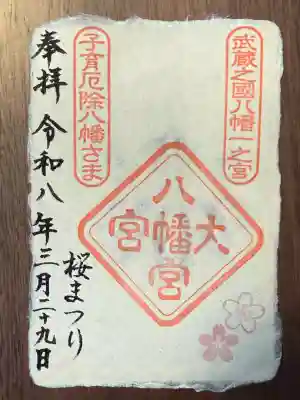 武蔵之國八幡一之宮
大
八幡宮
宮
子育厄除八幡さま
桜まつり
奉拝 令和八年三月二十九日